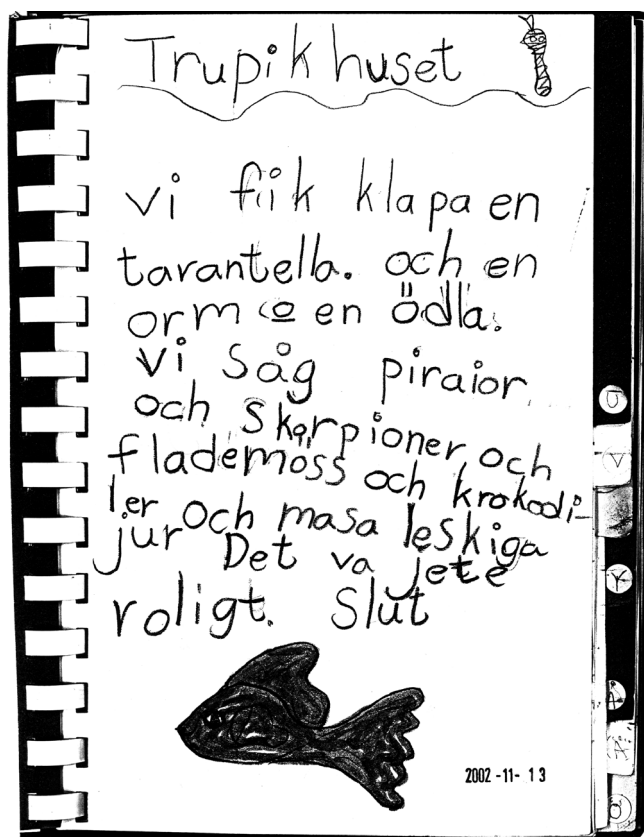 Trupikhuset
vi fiik klapa en
tarantella. och en
orm o en ödla.
vi såg piraior
och skorpioner och
flademöss och krokodi-
ler och masa leskiga
jur Det va jete
roligt. Slut
2002-11-13